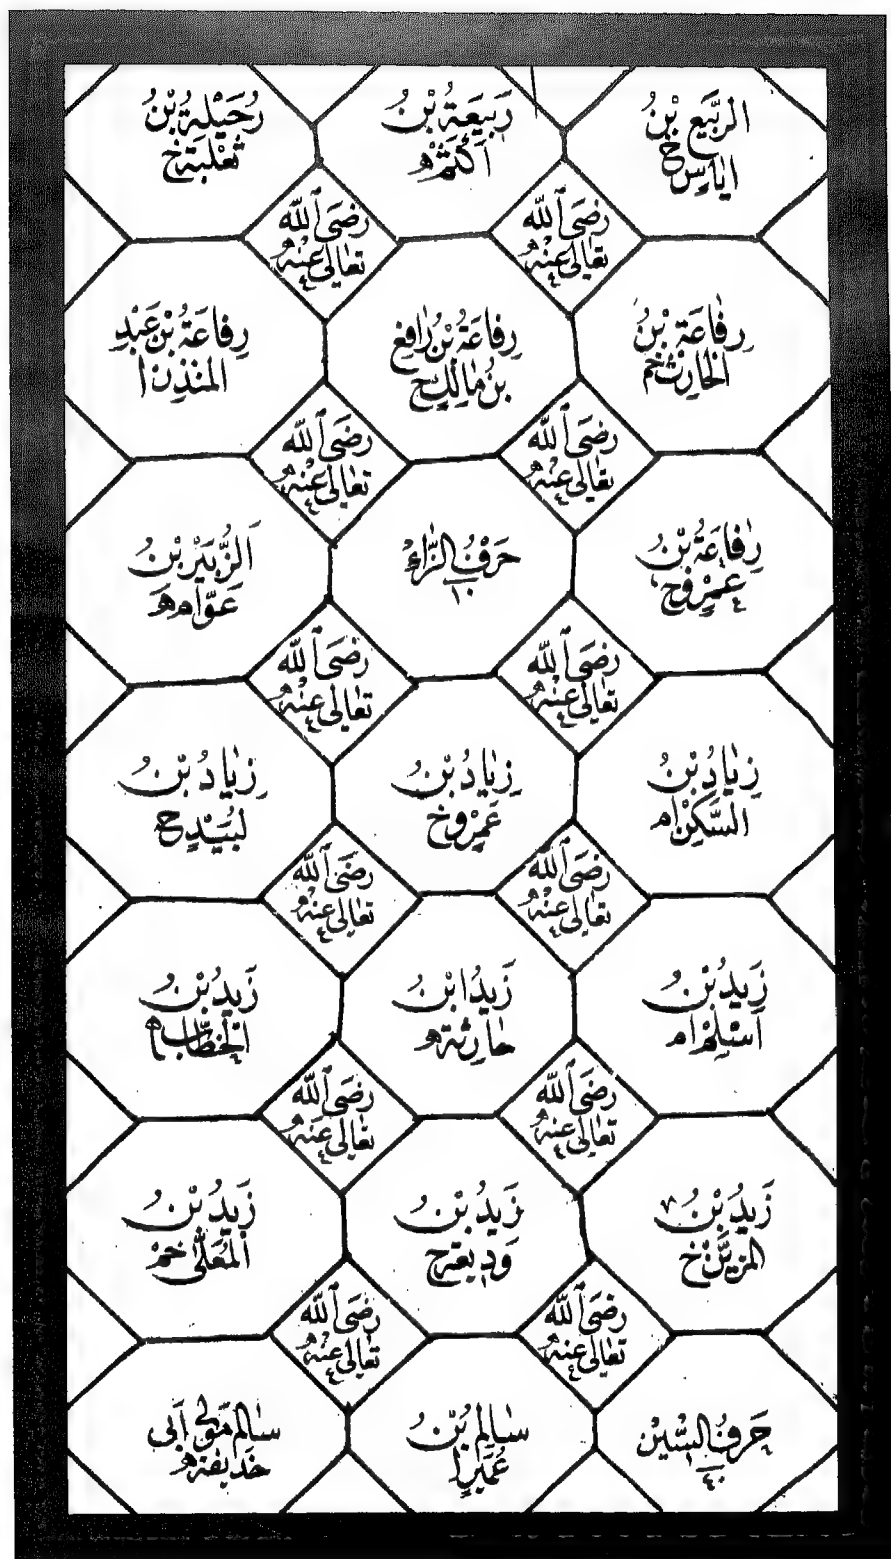 الرَّبِيعُ بْنُ
اِيَاسٍ خ
رَبِيعَةُ بْنُ
اَكْثَمَ ه
رُحَيْلَةُ بْنُ
ثَعْلَبَةَ خ
رَضِىَ اللّٰه
تَعَالٰى عَنْهُ
رَضِىَ اللّٰه
تَعَالٰى عَنْهُ
رِفَاعَةُ بْنُ
الْحَارِثِ خم
رِفَاعَةُ بْنُ رَافِعِ
بْنُ مَالِكٍ ح
رِفَاعَةُ بْنُ عَبْدِ
الْمُنْذِرِ ا
رَضِىَ اللّٰه
تَعَالٰى عَنْهُ
رَضِىَ اللّٰه
تَعَالٰى عَنْهُ
رِفَاعَةُ بْنُ
عَمْرٍو ج
حَرْفُ الزَّاءِ
١٠
اَلزُّبَيْرُ بْنُ
عَوَّامٍ ه
رَضِىَ اللّٰه
تَعَالٰى عَنْهُ
رَضِىَ اللّٰه
تَعَالٰى عَنْهُ
زِيَادُ بْنُ
السَّكَنِ ام
زِيَادُ بْنُ
عَمْرٍو خ
زِيَادُ بْنُ
لَبِيْدٍ ح
رَضِىَ اللّٰه
تَعَالٰى عَنْهُ
رَضِىَ اللّٰه
تَعَالٰى عَنْهُ
زَيْدُ بْنُ
اَسْلَمَ ام
زَيْدُ ابْنُ
حَارِثَةَ ه
زَيْدُ بْنُ
الْخَطَّابِ ه
رَضِىَ اللّٰه
تَعَالٰى عَنْهُ
رَضِىَ اللّٰه
تَعَالٰى عَنْهُ
زَيْدُ بْنُ
الْمُزَيَّنِ خ
زَيْدُ بْنُ
وَدِيعَةَ ح
زَيْدُ بْنُ
الْمُعَلّٰى خم
رَضِىَ اللّٰه
تَعَالٰى عَنْهُ
رَضِىَ اللّٰه
تَعَالٰى عَنْهُ
حَرْفُ السِّيْنِ
٤٠
سَالِمُ بْنُ
عُمَيْرٍ ا
سَالِمُ مَوْلٰى اَبِى
حُذَيْفَةَ ه